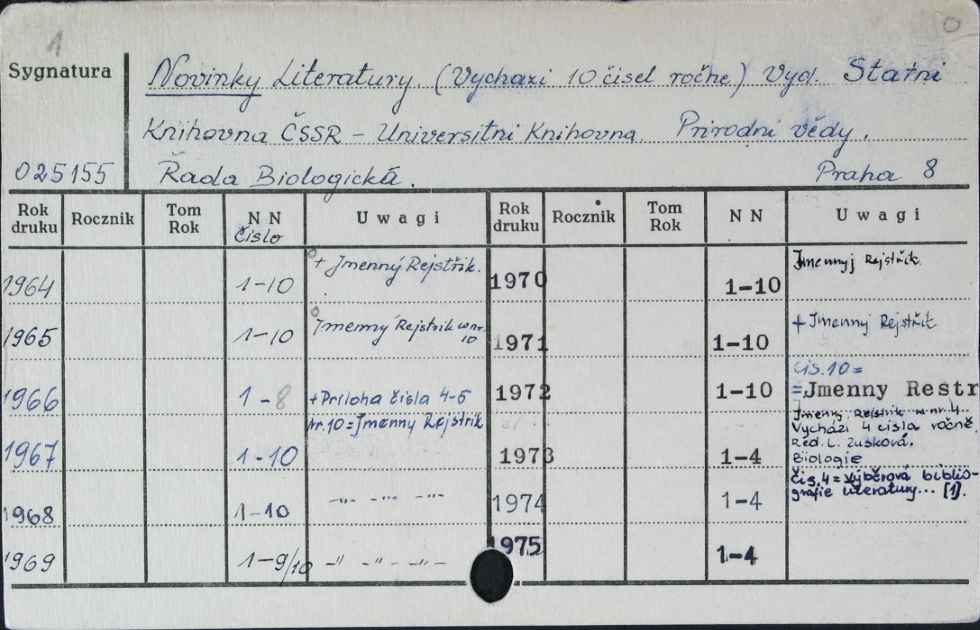 1
0
Sygnatura
Novinky Literatury. (Vychazi 10 čisel ročne) Vyd. Statni
Knihovna ČSSR – Universitni Knihovna. Prirodni vědy.
025155 Řada Biologická. Praha 8
Rok druku Rocznik Tom Rok NN Uwagi Rok druku Rocznik Tom Rok NN Uwagi
Čislo
1964 1–10 + Jmenný Rejstřik. 1970 1–10 Jmennyj Rejstřik
1965 1–10 Jmenný Rejstrik w nr. 10 1971 1–10 + Jmenny Rejstřik
1966 1–8 + Priloha čisla 4-6 1972 1–10 čis. 10 =
=Jmenny Restr
nr. 10 = Jmenny Rejstrik
Jmenny Rejstrik w nr 4.
Vychází 4 čisla ročně.
1967 1-10 1973 1–4 Red. L. Zusková.
Biologie
1968 1–10 –"– –"– –"– 1974 1–4 čis. 4 = výběrová biblio-
grafie literatury... [1].
1969 1–9/10 –"– –"– –"– 1975 1–4